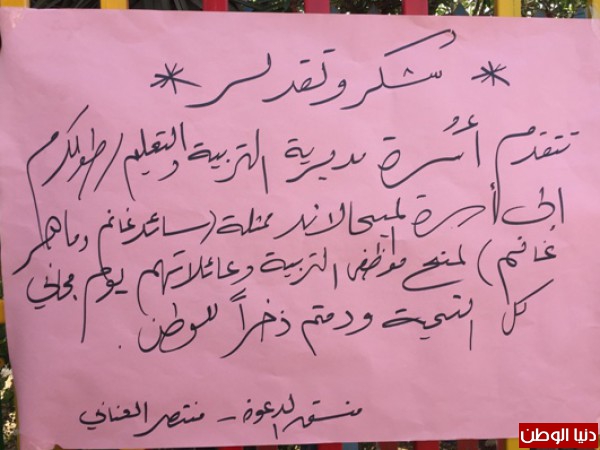 * شكر وتقدير *
تتقدم أسرة مديرية التربية والتعليم / طولكرم
إلى أسرة ميجا لاند ممثلة (سائد غانم وماهر
غانم) لمنح موظفي التربية وعائلاتهم يوم مجاني
كل التحية ودمتم ذخراً للوطن.
منسق الدعوة - منتصر العناني
دنيا الوطن